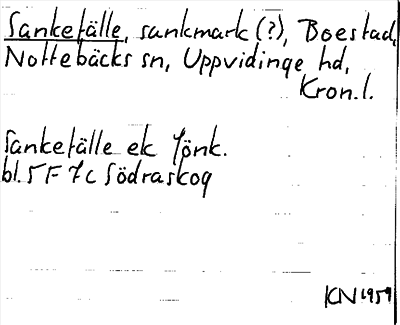 Sankefälle, sankmark (?), Boestad,
Nottebäcks sn, Uppvidinge hd,
Kron.l.
Sankefälle ek Jönk.
bl. 5F 7c Södraskog
KN 1959